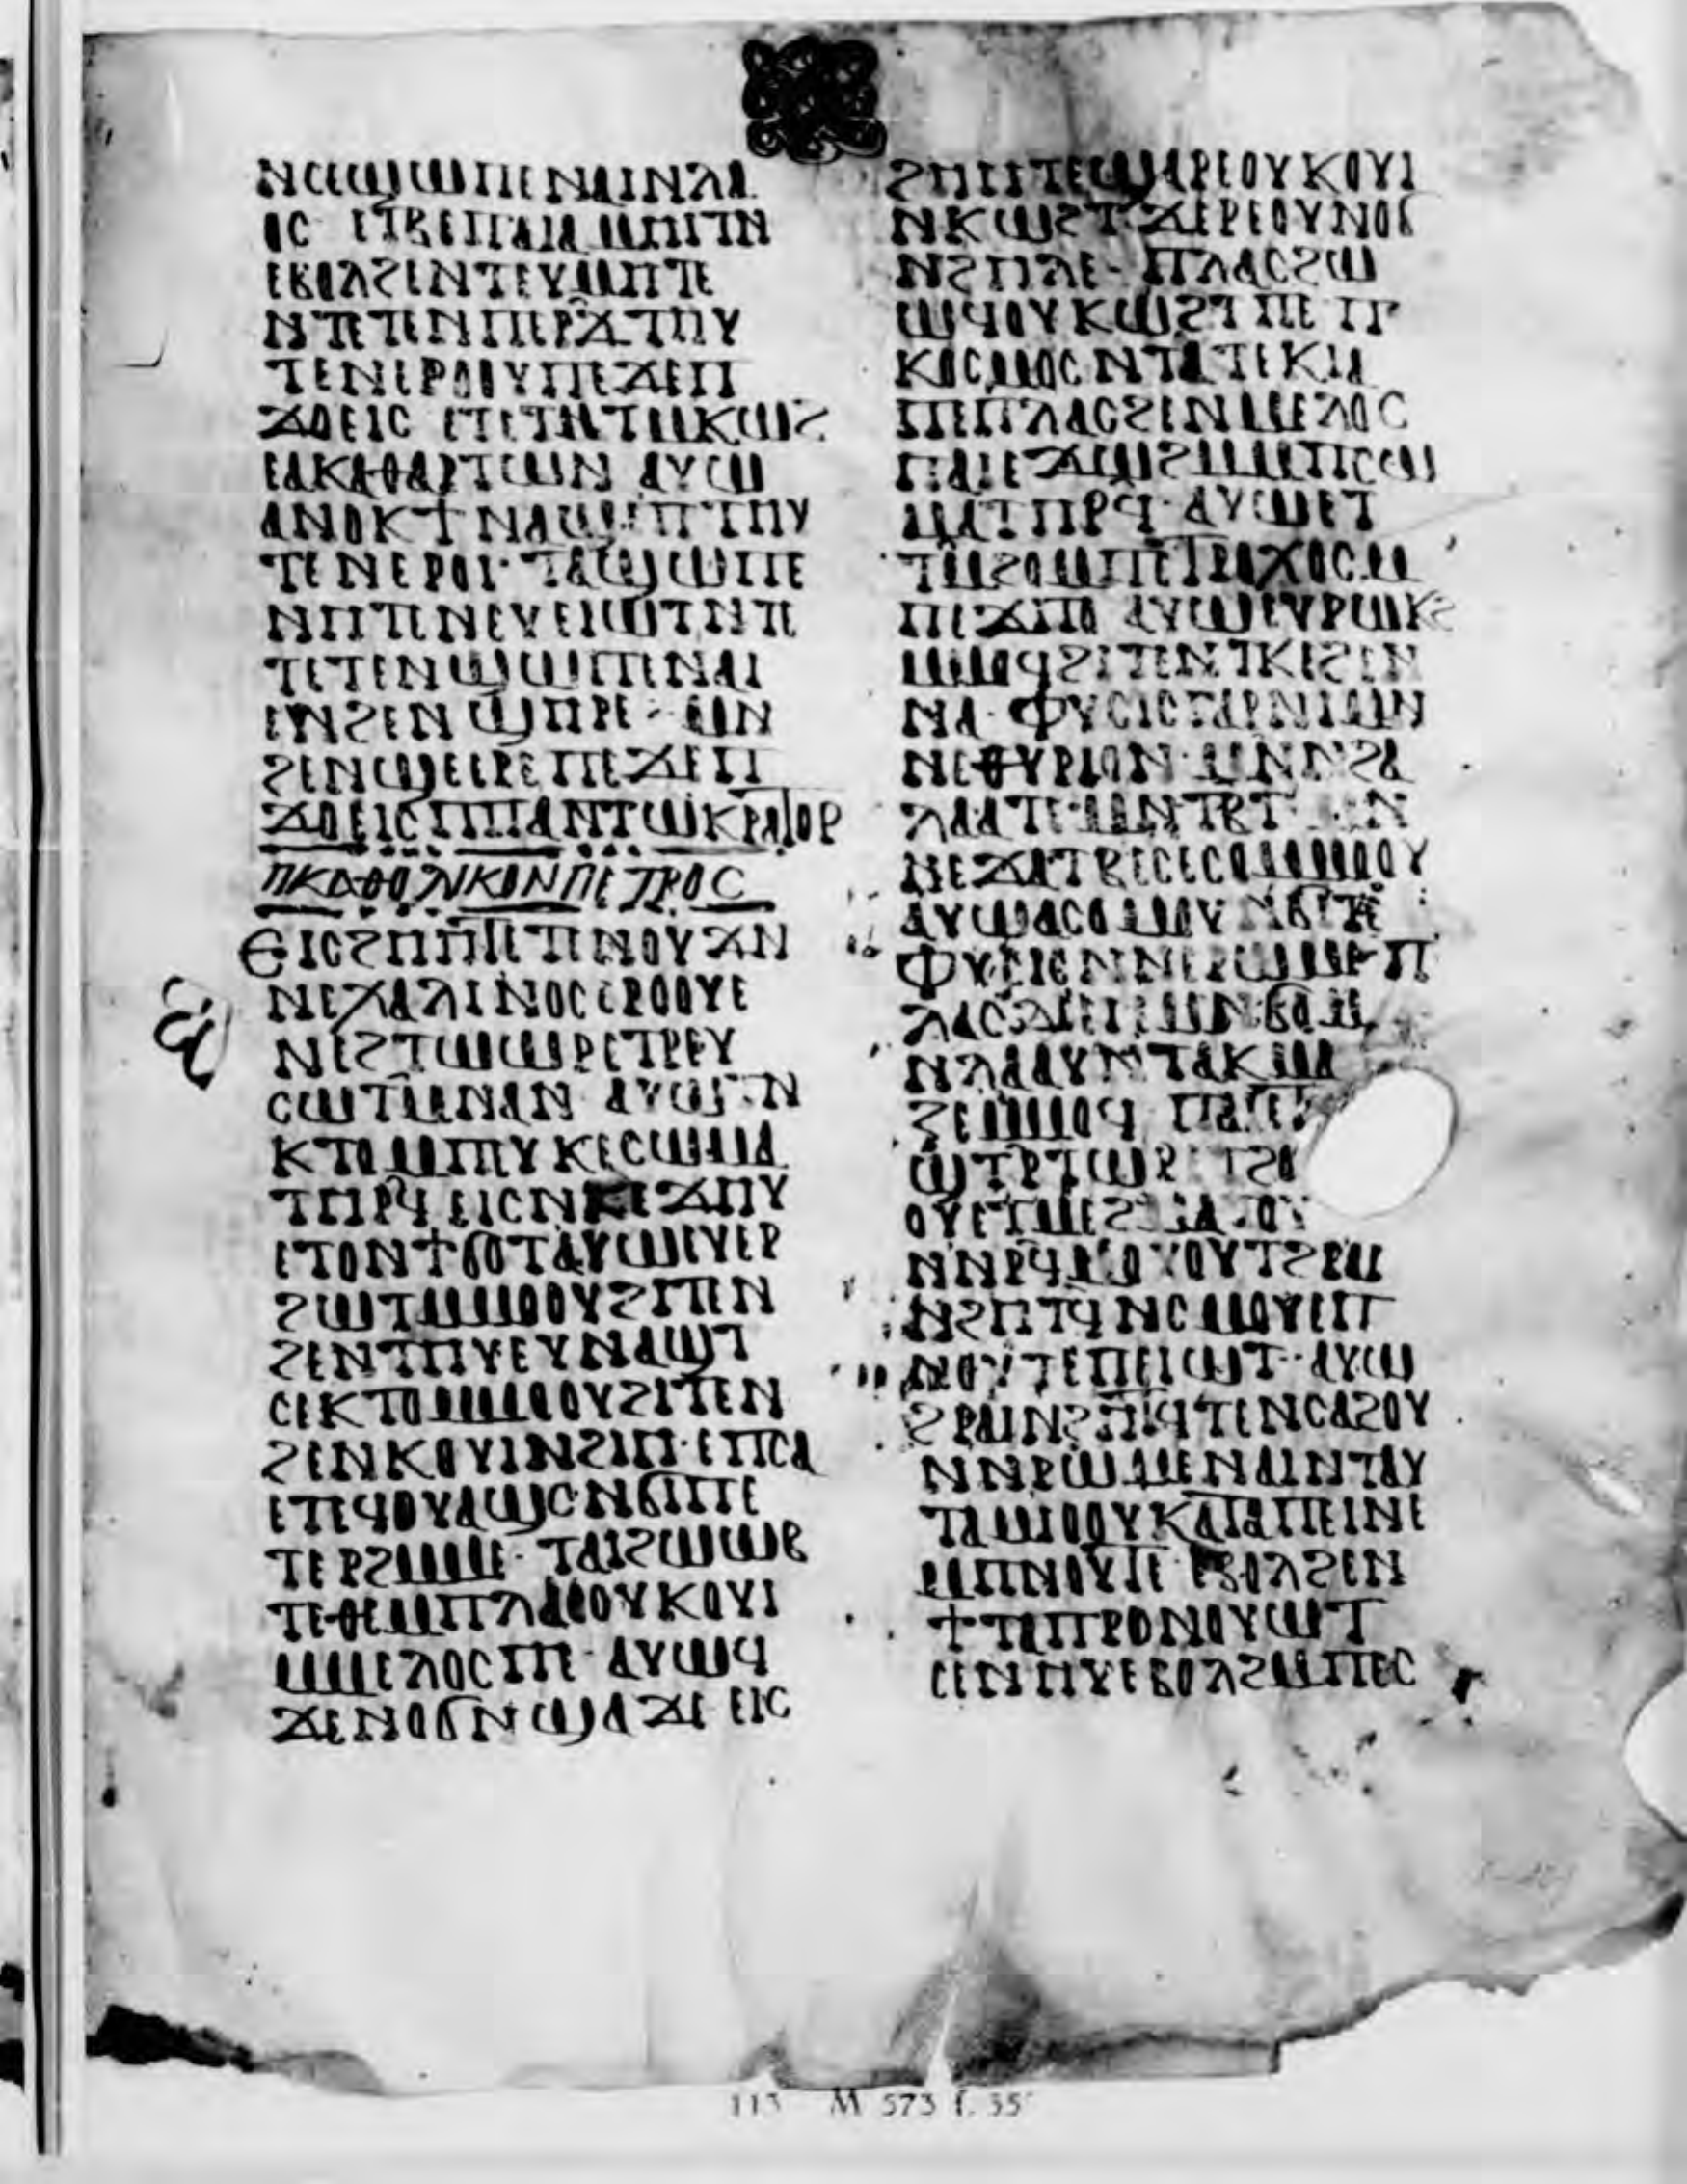 ⲛⲥⲉϣⲱⲡⲉⲛⲁⲓⲛⲗⲁ
ⲟⲥ ⲉⲧⲃⲉⲡⲁⲓⲁⲙⲏⲓⲧⲛ
ⲉⲃⲟⲗϩⲉⲛⲧⲉⲩⲙⲏⲧⲉ
ⲛⲧⲉⲧⲉⲛⲡⲉⲣϫⲧⲏⲩ
ⲧⲉⲛⲉⲣⲟⲟⲩⲡⲉϫⲉⲡ
ϫⲟⲉⲓⲥ ⲉⲧⲉⲧⲛⲧⲙⲕⲱϩ
ⲉⲁⲕⲁⲑⲁⲣⲧⲱⲛ ⲁⲩⲱ
ⲁⲛⲟⲕϯⲛⲁϣⲉⲡⲧⲏⲩ
ⲧⲉⲛⲉⲣⲟⲓ· ⲧⲁϣⲱⲡⲉ
ⲛⲏⲧⲉⲛⲉⲩⲉⲓⲱⲧⲛⲧⲉ
ⲧⲉⲧⲉⲛϣⲱⲡⲉⲛⲁⲓ
ⲉⲛϩⲉⲛϣⲏⲣⲉ· ⲙⲛ
ϩⲉⲛϣⲉⲉⲣⲉⲡⲉϫⲉⲡ
ϫⲟⲉⲓⲥⲡⲡⲁⲛⲧⲱⲕⲣⲁⲧⲟⲣ
ⲡⲕⲁⲑⲟⲗⲓⲕⲟⲛⲡⲉⲧⲣⲟⲥ
ⲉⲓⲥϩⲏⲏⲧⲉⲧⲛⲛⲟⲩϫⲛ
ⲛⲉⲭⲁⲗⲓⲛⲟⲥⲉⲣⲟⲟⲩⲉ
ⲛⲉϩⲧⲱⲱⲣⲉⲧⲣⲉⲩ
ⲥⲱⲧⲙⲛⲁⲛ ⲁⲩⲱⲧⲛ
ⲕⲧⲟⲙⲡⲩⲕⲉⲥⲱⲙⲁ
ⲧⲏⲣϥ ⲉⲓⲥⲛⲕⲉϫⲏⲩ
ⲉⲧⲟⲛϯϭⲟⲧⲁⲩⲱⲉⲩⲉⲣ
ϩⲱⲧⲙⲙⲟⲟⲩϩⲓⲧⲉⲛ
ϩⲉⲛⲧⲏⲩⲉⲩⲛⲁϣⲧ
ⲥⲉⲕⲧⲟⲙⲙⲟⲟⲩϩⲓⲧⲉⲛ
ϩⲉⲛⲕⲟⲩⲓⲛϩⲓⲏ· ⲉⲡⲥⲁ
ⲉⲧⲉϥⲟⲩⲁϣⲥⲛϭⲓⲡⲉ
ⲧⲉⲣϩⲙⲙⲉ· ⲧⲁⲓϩⲱⲱⲃ
ⲧⲉⲑⲉⲙⲡⲗⲁⲥⲟⲩⲕⲟⲩⲓ
ⲙⲙⲉⲗⲟⲥⲡⲉ· ⲁⲩⲱϥ
ϫⲉⲛⲟϭⲛϣⲁϫⲉ ⲉⲓⲥ
ϩⲏⲏⲧⲉϣⲁⲣⲉⲟⲩⲕⲟⲩⲓ
ⲛⲕⲱϩⲧ·ϫⲉⲣⲉⲟⲩⲛⲟϭ
ⲛϩⲏⲗⲉ· ⲡⲗⲁⲥϩⲱ
ⲱϥⲟⲩⲕⲱϩⲧⲡⲉ ⲡ
ⲕⲟⲥⲙⲟⲥⲛⲧⲁⲧⲉⲕⲓⲁ
ⲡⲉⲡⲗⲁⲥϩⲉⲛⲙⲙⲉⲗⲟⲥ
ⲡⲁⲓⲉϫⲱϩⲙⲙⲡⲥⲱ
ⲙⲁⲧⲏⲣϥ· ⲁⲩⲱⲉⲧ
ⲧⲙϩⲟⲙⲡⲉⲧⲣⲟⲭⲟⲥⲙ
ⲡⲉϫⲡⲟ ⲁⲩⲱⲉⲩⲣⲱⲕϩ
ⲙⲙⲟϥϩⲓⲧⲉⲛⲧⲕⲉϩⲉⲛ
ⲛⲁ· ⲫⲩⲥⲓⲥⲅⲁⲣⲛⲓⲙⲛ
ⲛⲉⲑⲩⲣⲓⲟⲛ· ⲙⲛⲛϩⲁ
ⲗⲁⲁⲧⲉ·ⲙⲛⲧⲃⲧ ⲙⲛ
ⲛⲉϫⲁⲧⲃⲉⲥⲉⲥⲟⲙⲙⲟⲩ
ⲁⲩⲱⲁⲥⲟⲙⲟⲩ ⲛϭⲓⲧⲉ
ⲫⲩⲥⲓⲥⲛⲛⲉⲣⲱⲙⲉ·ⲡ
ⲗⲁⲥ ⲙⲛϭⲟⲙ
ⲛⲗⲁⲁⲩⲛⲧⲁⲕⲙⲁ
ϩⲉⲙⲙⲟϥ
ϣⲧⲣⲧⲱⲣ
ⲟⲩⲉⲧⲙⲉϩ
ⲛϩⲏⲧϥⲛⲥⲙⲟⲩⲉⲡ
ⲛⲟⲩⲧⲉⲡⲉⲓⲱⲧ· ⲁⲩⲱ
ϩⲣⲁⲓⲛϩⲏⲧϥⲧⲉⲛⲥⲁϩⲟⲩ
ⲛⲛⲣⲱⲙⲉⲛⲁⲓⲛⲧⲁⲩ
ⲧⲁⲙⲓⲟⲟⲩⲕⲁⲧⲁⲡⲉⲓⲛⲉ
ⲙⲡⲛⲟⲩⲧⲉ ⲉⲃⲟⲗϩⲉⲛ
ϯⲧⲁⲡⲣⲟⲛⲟⲩⲱⲧ
ⲥⲉⲛⲏⲩⲉⲃⲟⲗϩⲙⲡⲉⲥ
M 573 f. 55